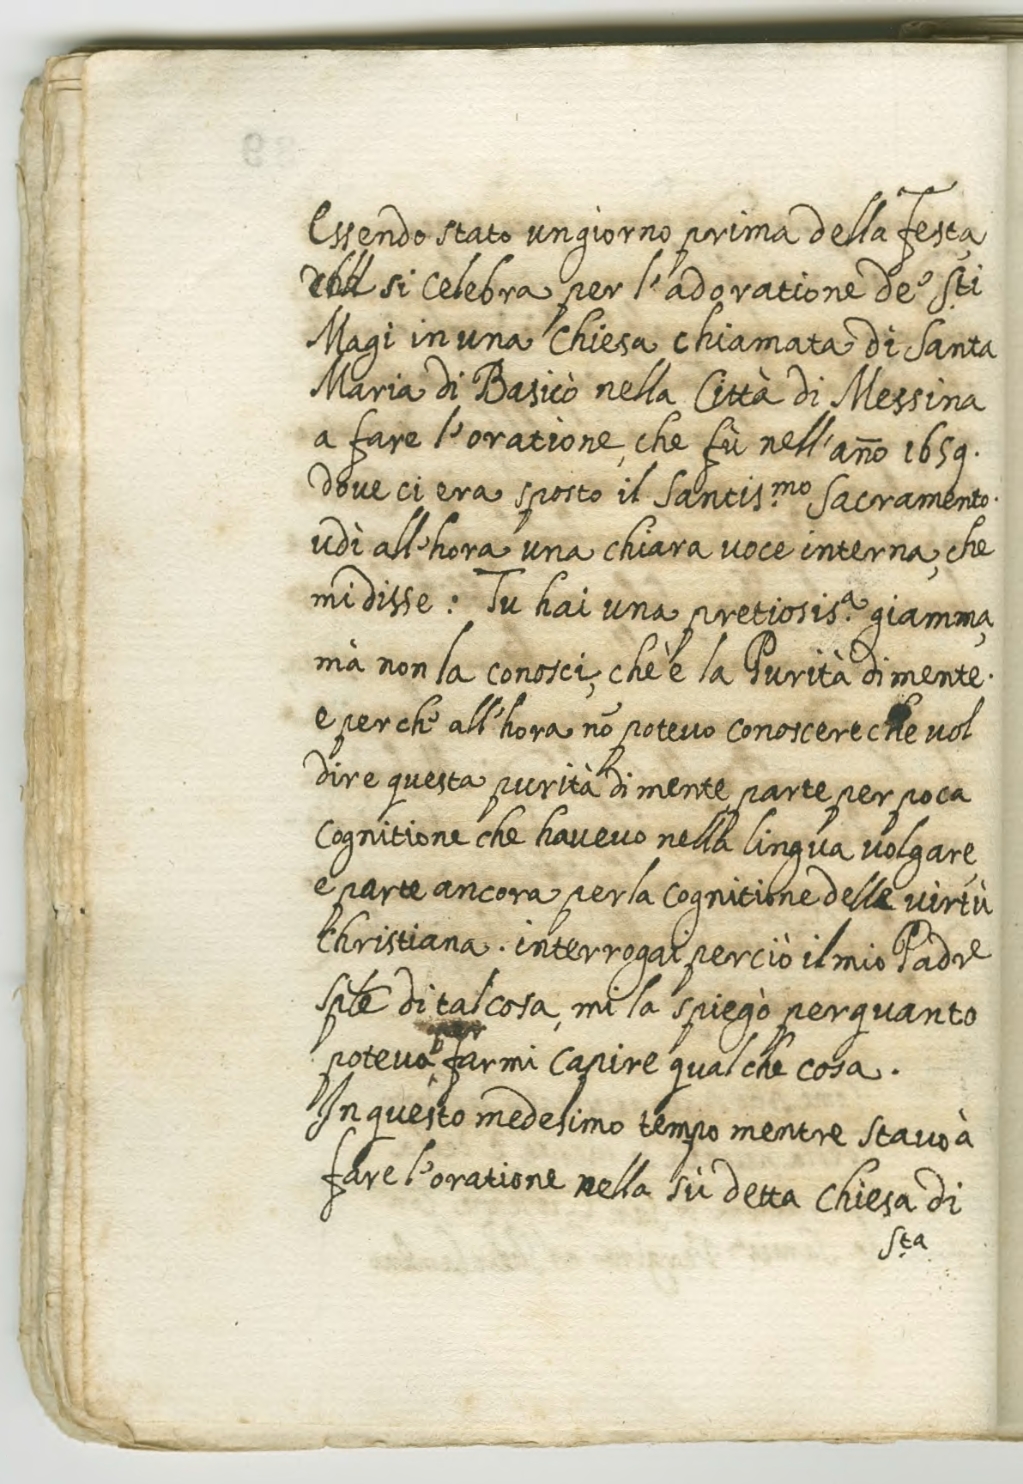 Essendo stato un giorno prima della festa,
si celebra per l'adoratione de' S.ti
Magi in una Chiesa chiamata di Santa
Maria di Basicò nella Città di Messina
a fare l'oratione, che fù nell'año 1659.
dove ci era sposto il Santis.mo Sacramento.
udì all'hora una chiara voce interna, che
mi disse: Tu hai una pretiosis.a giamma,
mà non la conosci, ch'è la Purità di mente.
e perche all'hora nō potevo conoscere che vol
dire questa purità di mente, parte per poca
cognitione che havevo nella lingua volgare,
e parte ancora per la cognitione delle virtù
christiana. interrogai perciò il mio Padre
Sp̃le di tal cosa, mi la spiegò per quanto
potevo, farmi capire qualche cosa.
In questo medesimo tempo mentre stavo à
fare l'oratione nella sù detta Chiesa di
S.ta